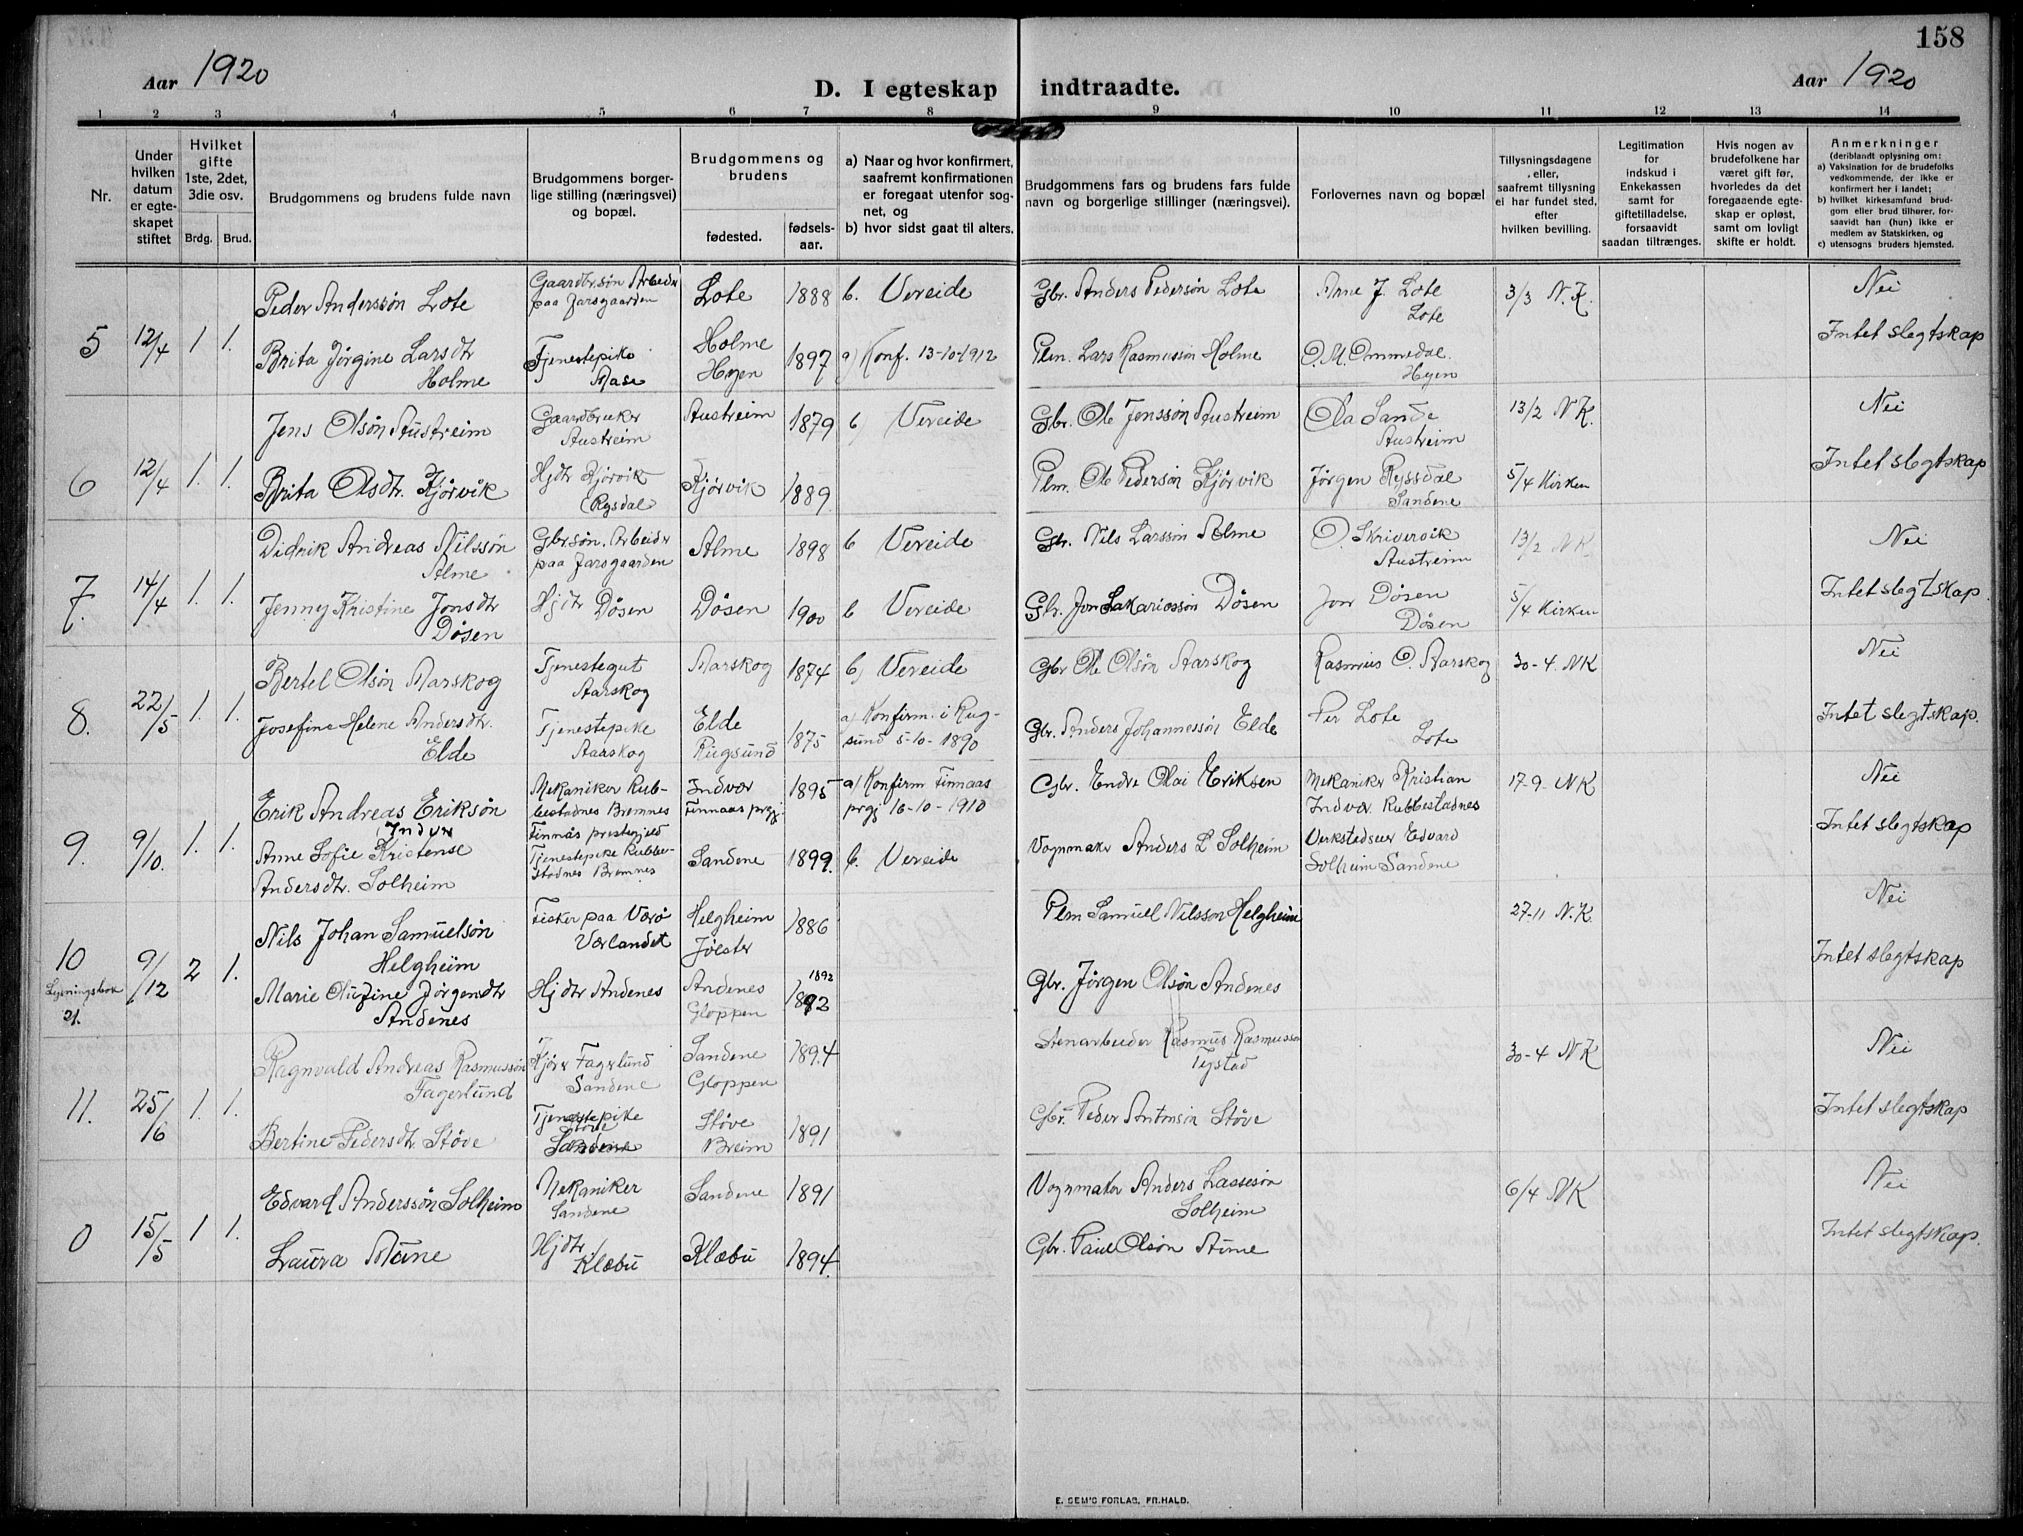 158
Aar 1920
D. I egteskap indtraadte.
Aar 1920
1 2 3 4 5 6 7 8 9 10 11 12 13 14
Nr.
Under hvilken datum er egte-skapet stiftet
Hvilket gifte 1ste, 2det, 3die osv.
Brdg. Brud.
Brudgommens og brudens fulde navn
Brudgommens borger-lige stilling (næringsvei) og bopæl.
Brudgommens og brudens
fødested.
fødsels-aar.
a) Naar og hvor konfirmert, saafremt konfirmationen er foregaat utenfor sog-net, og
b) hvor sidst gaat til alters.
Brudgommens fars og brudens fars fulde navn og borgerlige stillinger (næringsvei).
Forlovernes navn og bopæl
Tillysningsdagene eller, saafremt tillysning ei har fundet sted, efter hvilken bevilling.
Legitimation for indskud i Enkekassen samt for giftetilladelse, forsaavidt saadan tiltrænges.
Hvis nogen av brudefolkene har været gift før, hvorledes da det foregaaende egte-skap er opløst, samt om lovligt skifte er holdt.
Anmerkninger
(deriblandt oplysning om:
a) Vaksination for de brudefolks vedkommende, der ikke er konfirmert her i landet;
b) hvilket kirkesamfund brud-gom eller brud tilhører, for-saavidt han (hun) ikke er medlem av Statskirken, og
c) utensogns bruders hjemsted.
5 12/4 1 1.
Peder Anderssøn Lote
Gaardbr.søn Arbeidr
paa Jarsgaarden
Lote 1888 b. Vereide
Gbr. Anders Pedersøn Lote
Anne J. Lote
Lote
3/3 N.K.
Nei
Brita Jørgine Larsdtr
Holme
Tjenestepike
Aase
Holme
Hyen
1897 a) Konf. 13-10-1912
Plm. Lars Rasmussøn Holme
O.M. Ommedal.
Hyen
Intet slegtskap
6 12/4 1. 1.
Jens Olsøn Austreim
Gaardbruker
Austreim
Austreim 1879 b) Vereide
Gbr. Ole Jenssøn Austreim
Ola Sande
Austreim
13/2 NK.
Nei
Brita Olsdtr. Kjørvik
Hjdtr Kjørvik
Rysdal
Kjørvik 1889
Plm. Ole Pedersøn Kjørvik
Jørgen Ryssdal
Sandene
5/4 Kirken
Intet slegtskap
7. 14/4 1. 1.
Didrik Andreas Nilssøn
Alme
Gbrsøn. Arbeidr
paa Jarsgaarden
Alme 1898 b Vereide
Gbr. Nils Larssøn Alme
O. Skrivervik
Austreim
13/2 NK
Nei
Jenny Kristine Jonsdtr
Døsen
Hjdtr Døsen
Døsen 1900 b Vereide
Gbr. Jon Sakariassøn Døsen
Jon Døsen
Døsen
5/4 Kirken
Intet slegtskap.
8. 22/5 1. 1.
Bertel Olsøn Aarskog
Tjenestegut
Aarskog
Aarskog 1874 b) Vereide
Gbr Ole Olsøn Aarskog
Rasmus O. Aarskog
30-4. NK
Nei
Josefine Helene Andersdtr.
Elde
Tjenestepike
Aarskog
Elde
Rugsund
1875
a) Konfirm. i Rug-
sund 5-10-1890
Gbr. Anders Johannessøn Elde
Per Lote
Lote
Intet slegtskap.
9. 9/10. 1. 1.
Erik Andreas Eriksøn
Indvær
Mekaniker Rub-
bestadnes Bremnes
Finnås prestegjeld
Indvær
Finnaas prgj.
1895
a) Konfirm Finnaas
prgj 16-10-1910
Gbr. Endre Olai Eriksen
Mekaniker Kristian
Indvær Rubbestadnes
17-9- NK
Nei
Anne Sofie Kristense
Andersdtr. Solheim
Tjenestepike Rubbe-
stadnes Bremnes
Sandene 1899. b. Vereide
Vognmakr Anders L Solheim
Verkstadseier Edvard
Solheim Sandene
Intet slegtskap
10 9/12 2 1.
Lysningsbok
21.
Nils Johan Samuelsøn
Helgheim
Fisker paa Værø
Værlandet
Helgheim
Jølster
1886
Plm Samuel Nilsson Helgheim
27-11 N.K.
Nei
Marie Jørgensdtr
Andenes
Hjdtr Andenes
Andenes
Gloppen
1892
1892
Gbr. Jørgen Olsøn Andenes
Intet slegtskap
11. 25/6 1. 1.
Ragnvald Andreas Rasmussøn
Fagerlund
Fagerlund
Sandene
Sandene
Gloppen
1894
Stenarbeider Rasmus Rasmussøn
Tystad
30-4 NK
Nei
Bertine Pedersdtr Støve
Tjenestepike
Støve
Støve
Breim
1891
Gbr. Peder Antonsøn Støve
Intet slegtskap
0 15/5 1 1.
Edvard Anderssøn Solheim
Mekaniker
Sandene
Sandene 1891
Vognmaker Anders Lassesøn
Solheim
6/4 NK
Nei
Laura Aune
Hjdtr.
Klæbu
Klæbu 1894.
Gbr. Paul Olsøn Aune
Intet slegtskap.
E. SEM'S FORLAG, FR.HALD.